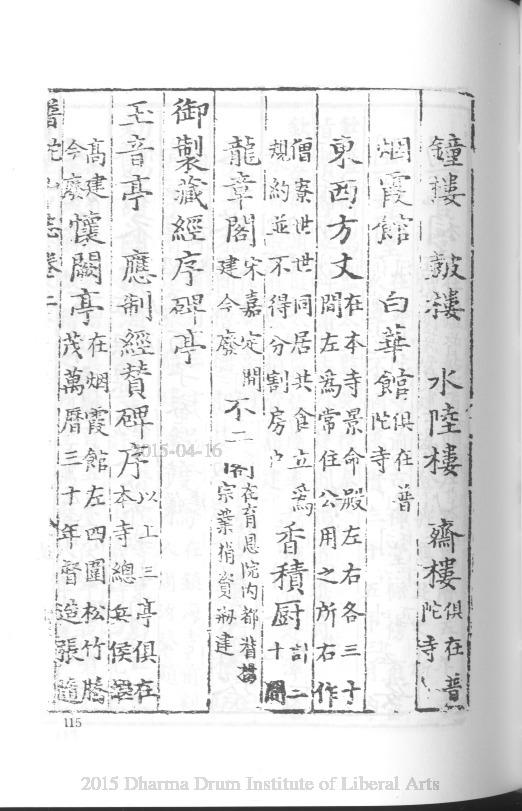 鐘樓 鼓樓 水陸樓 齋樓俱在普陀寺
烟霞館 白華館俱在普陀寺
東西方丈在本寺景命殿左右各三十間左爲常住公用之所右作
僧寮世世同居共食立爲規約並不得分割房 香積厨計二十間
龍章閣宋嘉定間建今廢 不二閣在育恩院内都督 宗業捐資剏建
御製藏經序碑亭
玉音亭 應制經贊碑序以上三亭俱在本寺總兵侯
高建今廢 懷闕亭在烟霞館左四圍松竹 茂萬曆三十年督造張隨
普陀山志卷二
115
2015-04-16
2015 Dharma Drum Institute of Liberal Arts